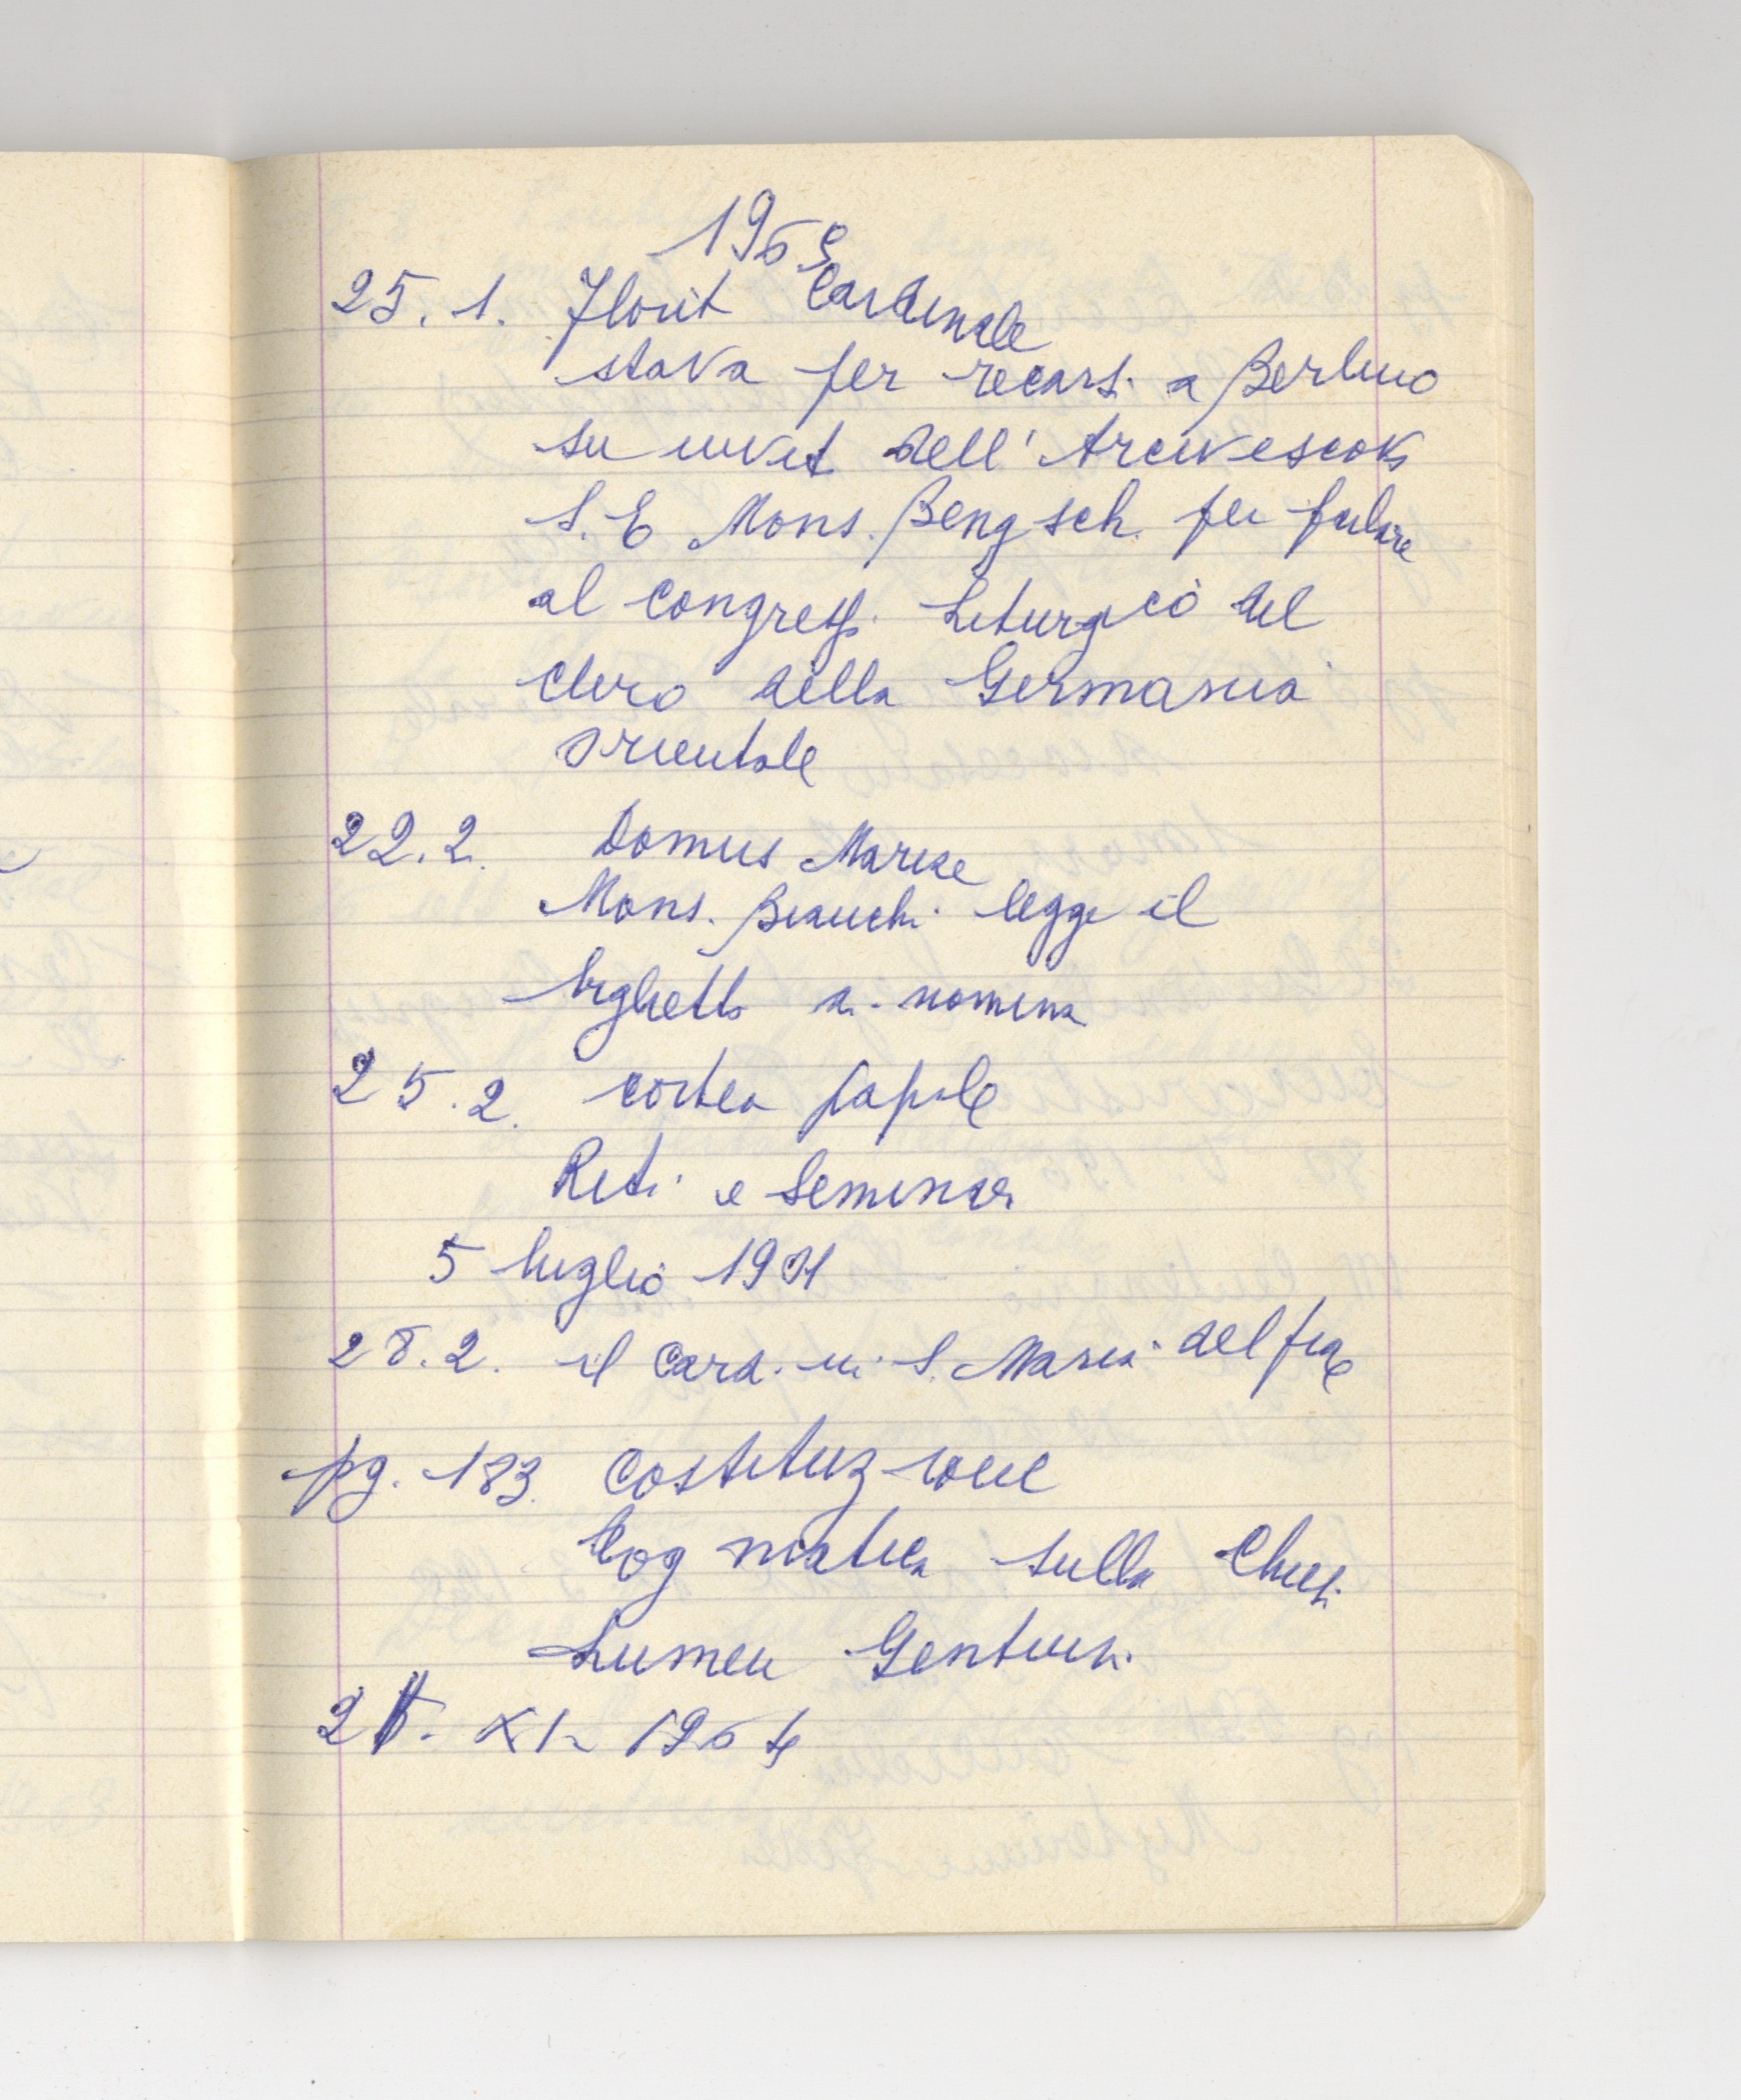 1965
25. 1. Florit Cardinale
stava per recarsi a Berlino
su invit dell' Arcivescovo
S. E Mons. Bengsch. per parlare
al congresso Liturgico del
clero della Germania
orientale
22. 2. Domus Mariae
Mons. Bianchi legge il
biglietto di nomina
25. 2. corteo papale
Reti e Seminar
5 luglio 1901
28. 2. il Card. in S. Maria del fiore
pg. 183. Costituzione
Dogmatica sulla Chiesa
Lumen Gentium
21. XI - 1964